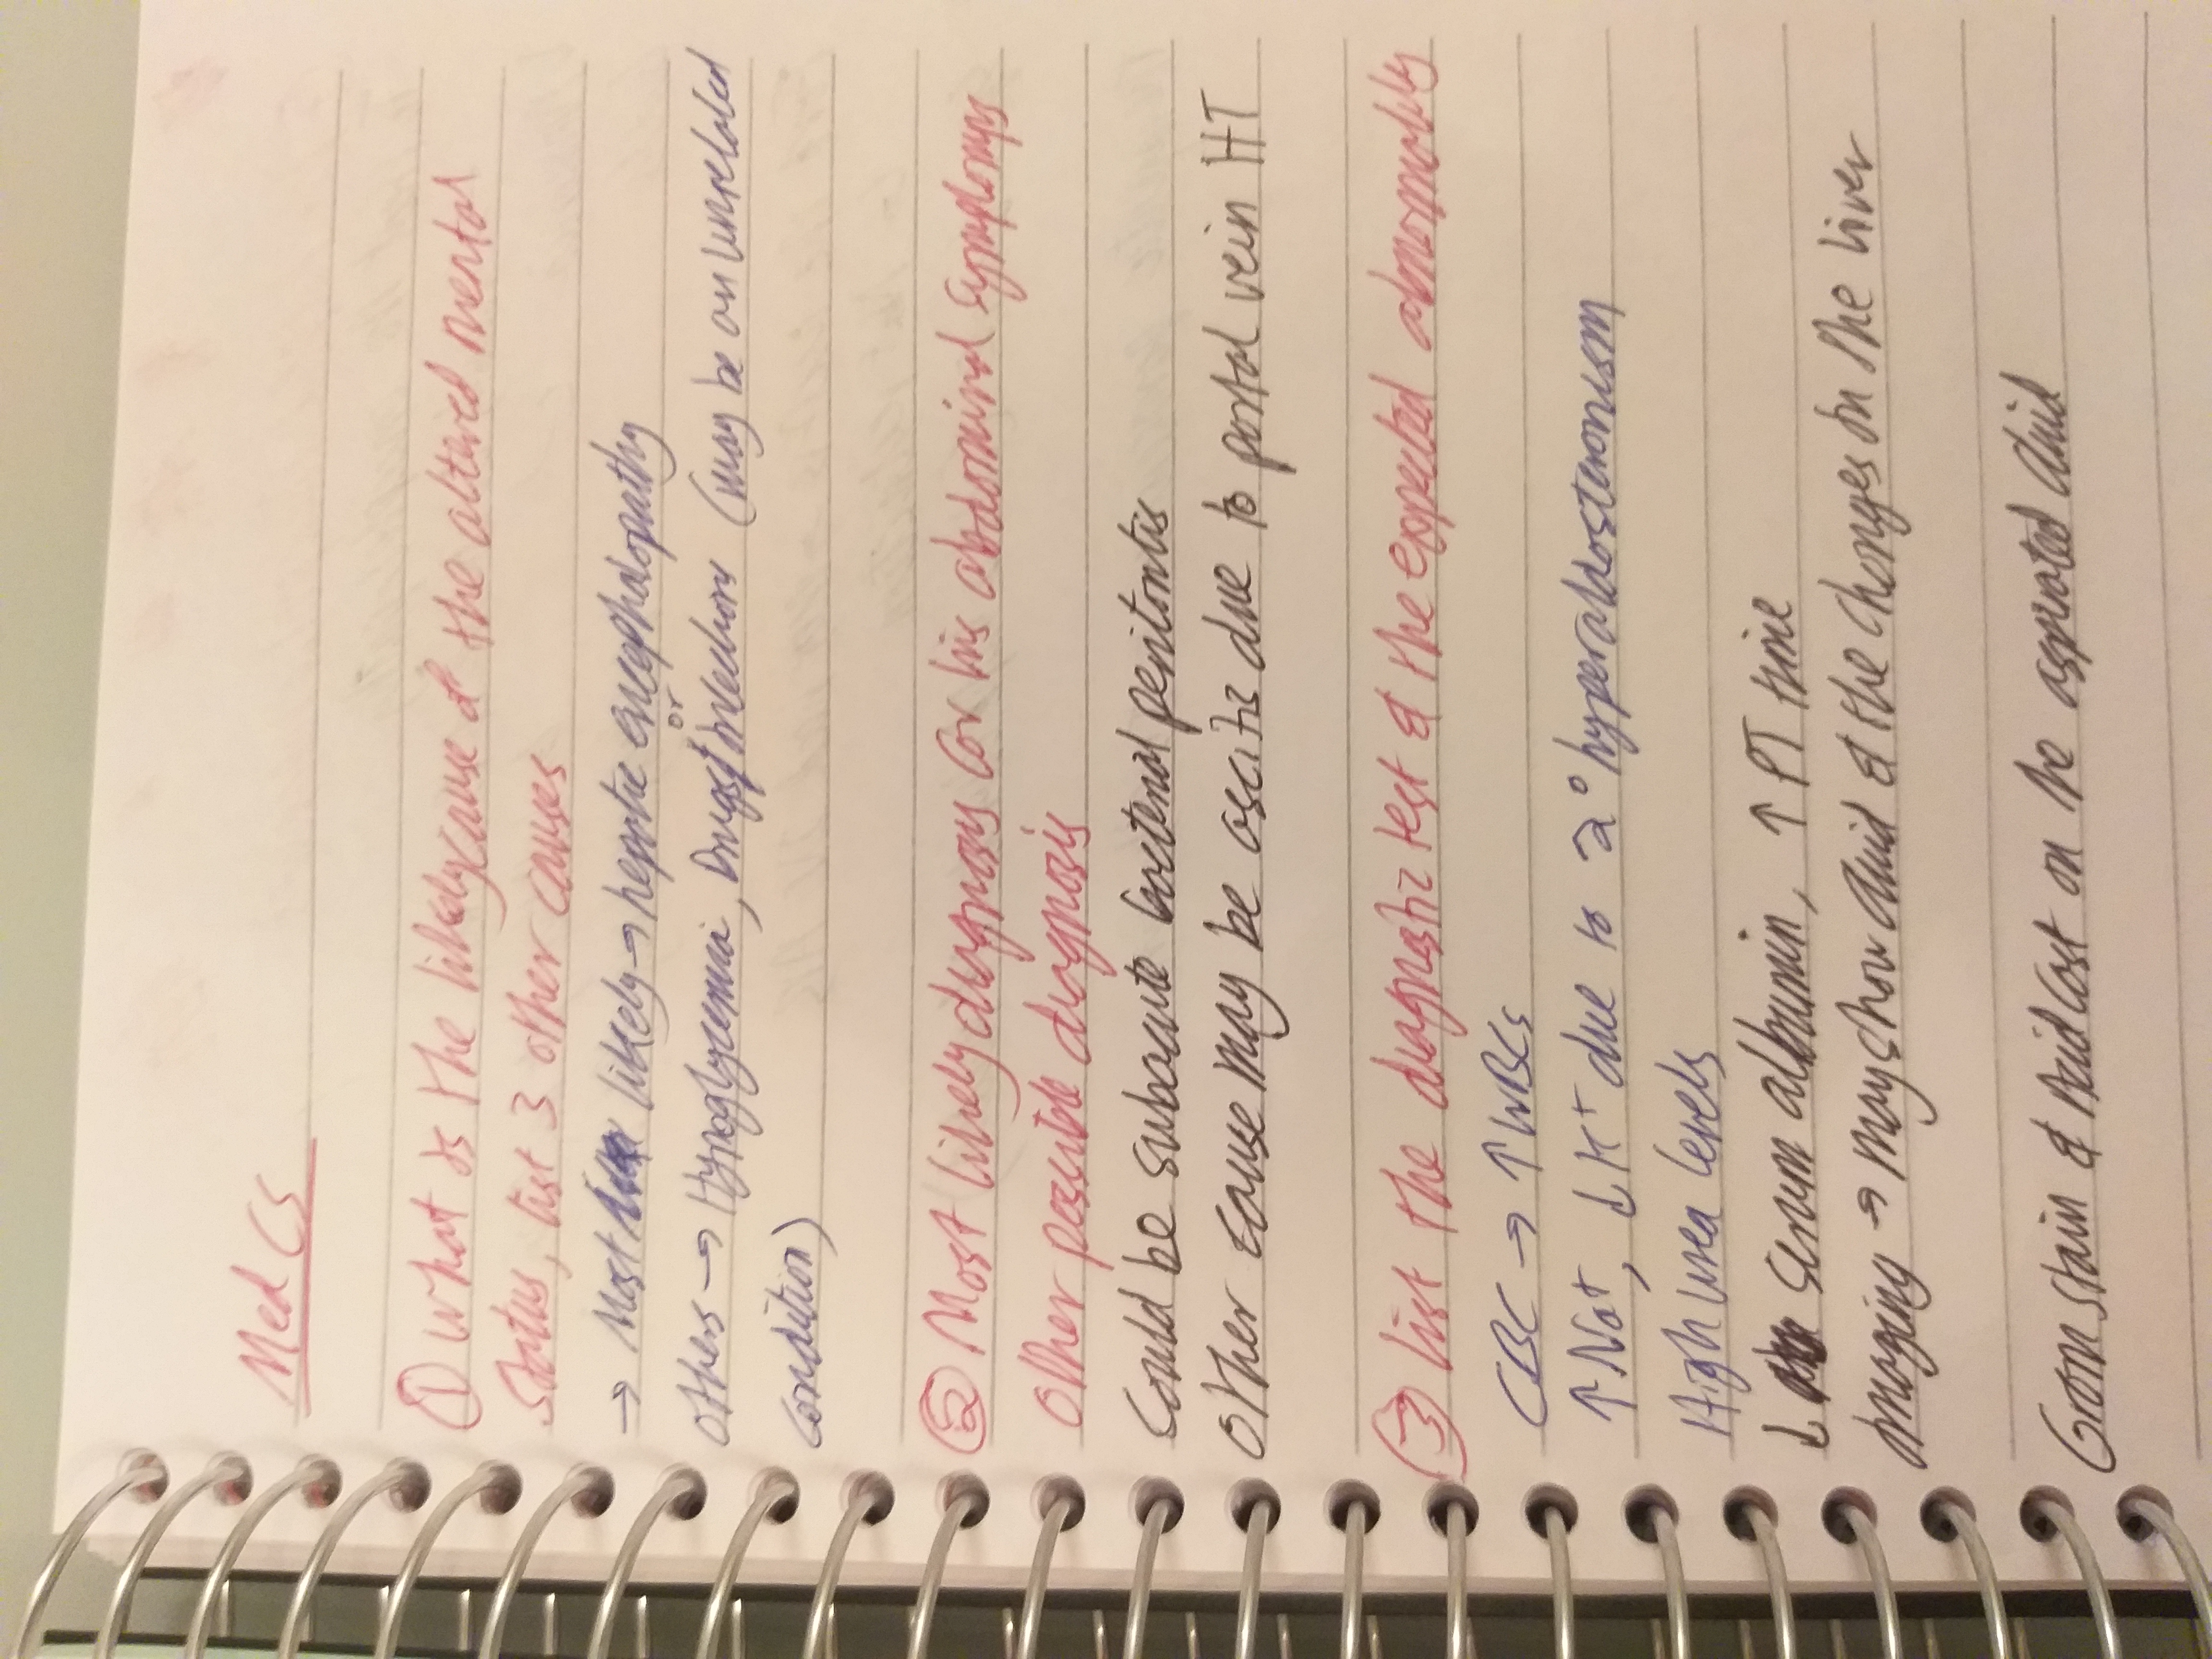 Med Cs
① What is the likely cause of the altered mental
status, list 3 other causes
→ Most likely → heptic encephalopathy
or
others → Hypoglycemia, Drugs, (may be an unrelated
condition)
② Most likely diagnosis for his abdominal symptoms
other possible diagnosis
Could be subacute bacterial peritonitis
other cause may be ascitis due to portal vein HT
③ list the diagnostic test & the expected abnormality
CBC → ↑ WBCs
↑ Na+, ↓ K+ due to 2° hyperaldosteronism
High urea levels
↓ serum albumin, ↑ PT time
imaging → may show fluid & the changes in the liver
Gram stain & fluid on the aspirated fluid